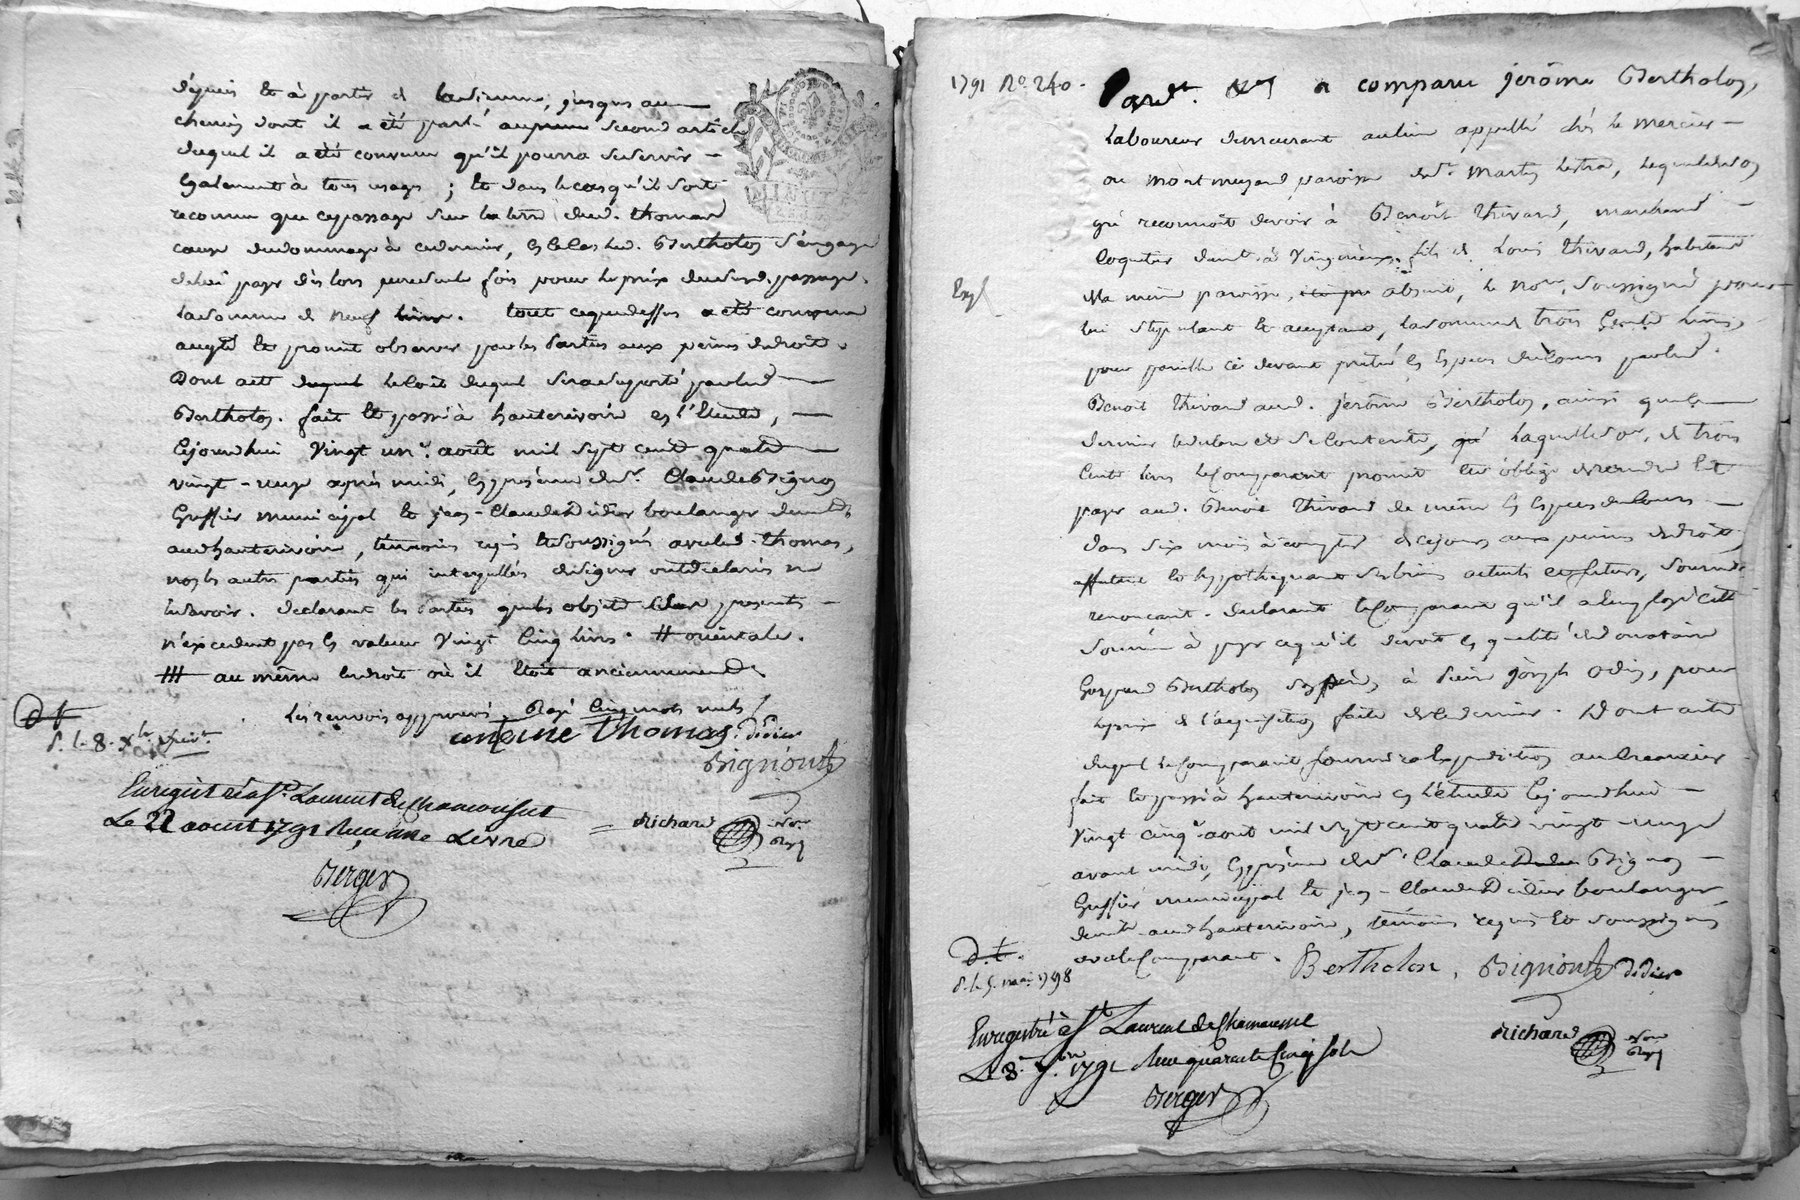 depuis et à partir de
chemin dont il a été parlé second article
duquel il a été convenu qu'il pourra se servir
également à tous usages ; et dans le cas qu'il soit
reconnu que ce passage sur la terre dud. thomas
cause du dommage à ce dernier, led. Bertholon s'engage
de lui payer dès lors une seule fois pour le prix dud. passage
la somme de neuf livres. tout ce que dessus a été convenu
accepté et promis observer par les parties aux peines de droit.
Dont acte duquel le coût duquel sera supporté par led.
Bertholon. fait et passé à hauterivoire en l'Etude,
cejourdhui vingt un août mil sept cent quatre
vingt-onze après midi, en présence de Sr. Claude Bignon
Greffier municipal et jean-Claude Didier boulanger demt.
aud. hauterivoire, témoins requis et soussignés avec led. thomas,
non les autres parties qui interpellées de signer ont déclaré ne
le savoir. Déclarant les parties que les objets présents
n'excèdent pas la valeur vingt cinq livres. # orientale.
## au même endroit où il étoit anciennement.
Les renvois approuvés. Rayé cinq mots nuls
antoine Thomas. didier
Bignon
d. t.
Enregistré à St. Laurent de Chamousset
Le 22 aout 1791 Reçu une Livre
richard nore
Berger
1791 No. 240.
Pardt. Nous a comparu jerôme Bertholon,
Laboureur demeurant au lieu appellé chés le mercier
ou montmeyand paroisse de St. Martin Lestra, lequel de son
gré reconnoit devoir à Benoît thivard, marchand
coquetier demt. à Virigneux, fils de Louis thivard, habitant
la même paroisse, absent, le nore. soussigné pour
lui stipulant et acceptant, la somme de trois cents livres,
pour pareille ci devant prêtée en espèces de cours par led.
Benoit thivard aud. jerôme Bertholon, ainsi que ce
dernier le déclare et se contente, laquelle somme de trois
cents livres le comparant promet et s'oblige de rendre et
payer aud. Benoit thivard de même en espèces de cours
dans six mois à compter de ce jour aux peines de droit,
affectant et hypothequant ses biens actuels et futurs, soumis.
renonçant. Déclarant le comparant qu'il a employé cette
somme à payer ce qu'il devoit en qualité de donataire
Gaspard Bertholon son père, à Pierre joseph odin, pour
le prix de l'acquisition faite de ce dernier. Dont acte
duquel le comparant fournira expédition au creancier
fait et passé à hauterivoire en l'étude cejourdhui
vingt cinq août mil sept cent quatre vingt-onze
avant midi, en présence de Sr. Claude Bignon
Greffier municipal et jean-Claude Didier boulanger
demt. aud. hauterivoire, témoins requis et soussignés
avec le comparant. Bertholon, Bignon didier
d. t.
d. le 5. mai 1798
Enregistré à St Laurent de Chamousset
Le 8 7bre 1791 Reçu quarante cinq sols
richard nore
Berger